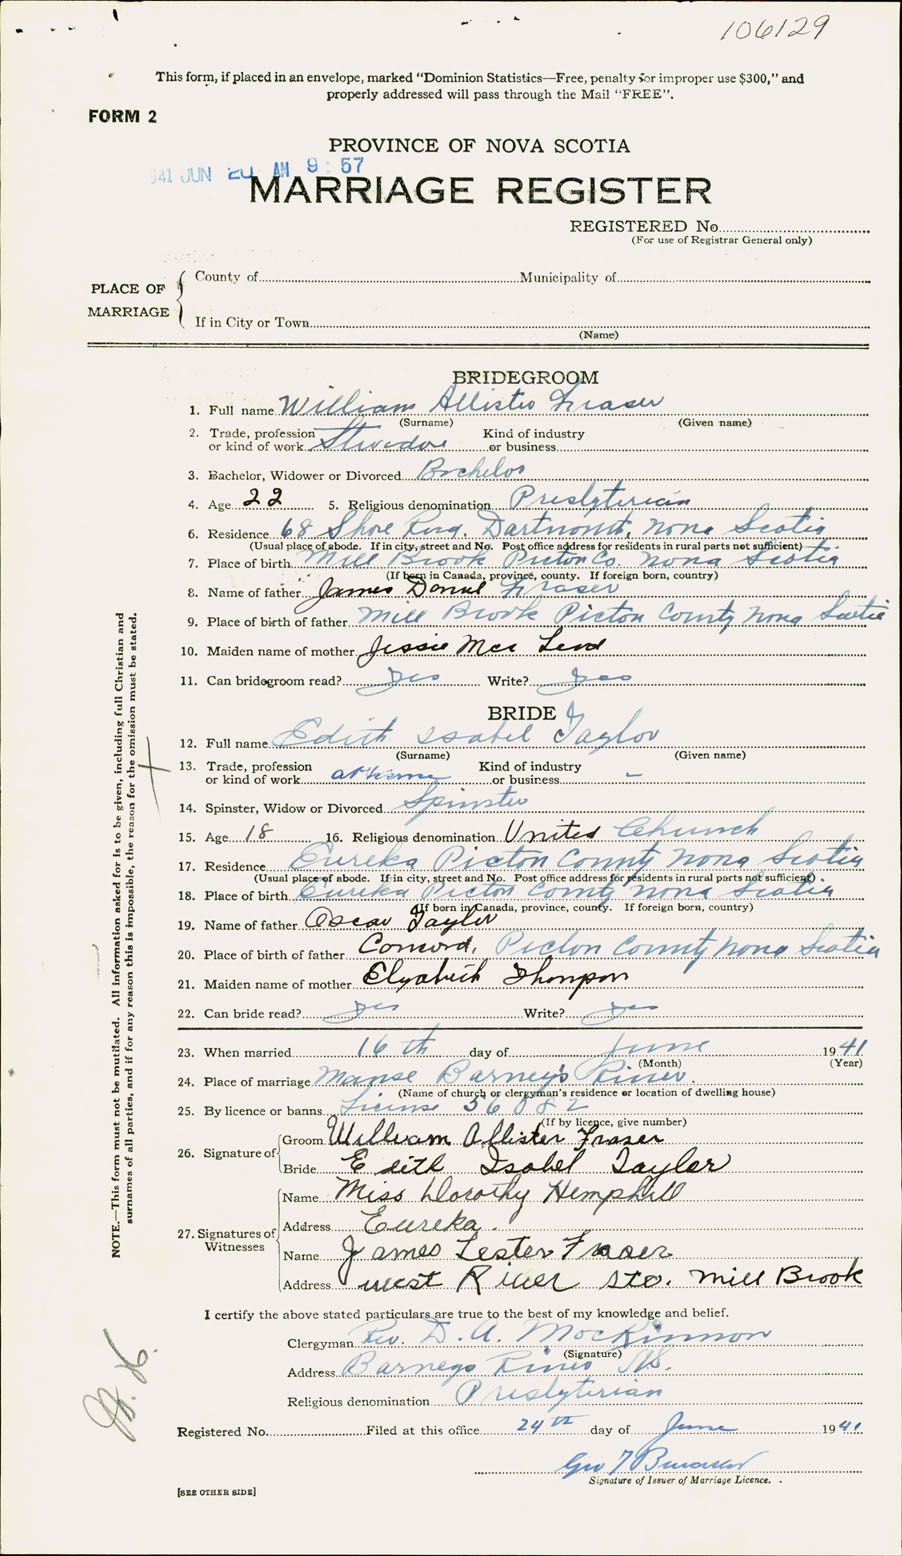 106129
This form, if placed in an envelope, marked "Dominion Statistics—Free, penalty for improper use $300," and
properly addressed will pass through the Mail "FREE".
FORM 2
PROVINCE OF NOVA SCOTIA
941 JUN 20 AM 9:57
MARRIAGE REGISTER
REGISTERED No.
(For use of Registrar General only)
PLACE OF MARRIAGE
County of Municipality of
If in City or Town
(Name)
BRIDEGROOM
1. Full name William Allister Fraser
(Surname) (Given name)
2. Trade, profession or kind of work Stevedore Kind of industry or business
3. Bachelor, Widower or Divorced Bachelor
4. Age 22 5. Religious denomination Presbyterian
6. Residence 68 Shore Dartmouth, Nova Scotia
(Usual place of abode. If in city, street and No. Post office address for residents in rural parts not sufficient)
7. Place of birth Mill Brook Pictou Co. Nova Scotia
(If born in Canada, province, county. If foreign born, country)
8. Name of father James Daniel Fraser
9. Place of birth of father Mill Brook Pictou County Nova Scotia
10. Maiden name of mother Jessie Mac Leod
11. Can bridegroom read? Yes Write? Yes
BRIDE
12. Full name Edith Isabel Taylor
(Surname) (Given name)
13. Trade, profession or kind of work at home Kind of industry or business –
14. Spinster, Widow or Divorced Spinster
15. Age 18 16. Religious denomination United Church
17. Residence Eureka Pictou County Nova Scotia
(Usual place of abode. If in city, street and No. Post office address for residents in rural parts not sufficient)
18. Place of birth Eureka Pictou County Nova Scotia
(If born in Canada, province, county. If foreign born, country)
19. Name of father Oscar Taylor
20. Place of birth of father Concord, Pictou County Nova Scotia
21. Maiden name of mother Elizabeth Thompson
22. Can bride read? Yes Write? Yes
23. When married 16th day of June 1941
(Month) (Year)
24. Place of marriage Manse Barney's River.
(Name of church or clergyman's residence or location of dwelling house)
25. By licence or banns License 56082
(If by licence, give number)
26. Signature of
Groom William Allister Fraser
Bride Edith Isabel Taylor
27. Signatures of Witnesses
Name Miss Dorothy Hemphill
Address Eureka.
Name James Lester Fraser
Address West River Sta. Mill Brook
I certify the above stated particulars are true to the best of my knowledge and belief.
Clergyman Rev. D. A. MacKinnon
(Signature)
Address Barneys River N.S.
Religious denomination Presbyterian
Registered No. Filed at this office 24th day of June 1941
Geo T
Signature of Issuer of Marriage Licence.
[SEE OTHER SIDE]
NOTE.—This form must not be mutilated. All information asked for is to be given, including full Christian and
surnames of all parties, and if for any reason this is impossible, the reason for the omission must be stated.